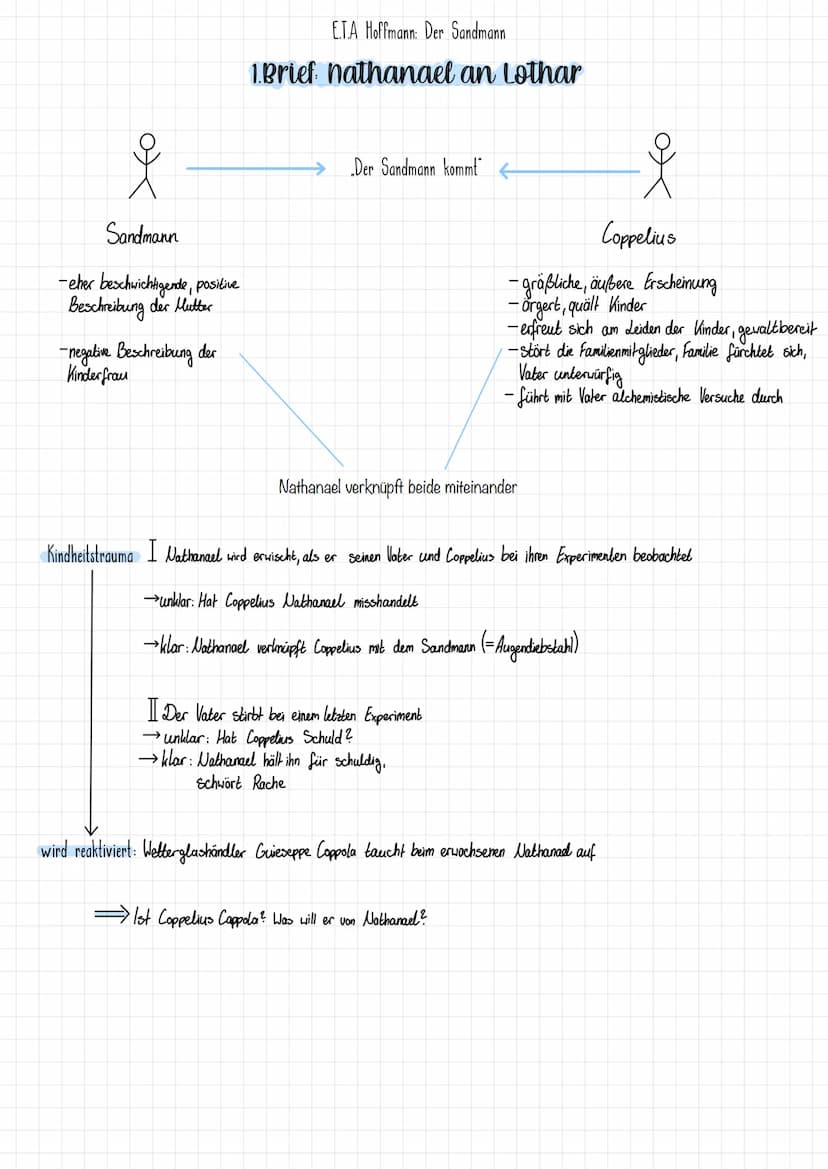 E.T.A Hoffmann: Der Sandmann
1.Brief: Nathanael an Lothar
„Der Sandmann kommt“
Sandmann
-eher beschwichtigende, positive
Beschreibung der Mutter
-negative Beschreibung der
Kinderfrau
Coppelius
-gräßliche, äußere Erscheinung
-ärgert, quält Kinder
-erfreut sich am Leiden der Kinder, gewaltbereit
-stört die Familienmitglieder, Familie fürchtet sich,
Vater unterwürfig
- führt mit Vater alchemistische Versuche durch
Nathanael verknüpft beide miteinander
Kindheitstrauma I Nathanael wird erwischt, als er seinen Vater und Coppelius bei ihren Experimenten beobachtet
→unklar: Hat Coppelius Nathanael misshandelt
→klar: Nathanael verknüpft Coppelius mit dem Sandmann (=Augendiebstahl)
II Der Vater stirbt bei einem letzten Experiment
→unklar: Hat Coppelius Schuld?
→klar: Nathanael hält ihn für schuldig,
schwört Rache
wird reaktiviert: Wetterglashändler Guieseppe Coppola taucht beim erwachsenen Nathanael auf
⇒Ist Coppelius Coppola? Was will er von Nathanael?